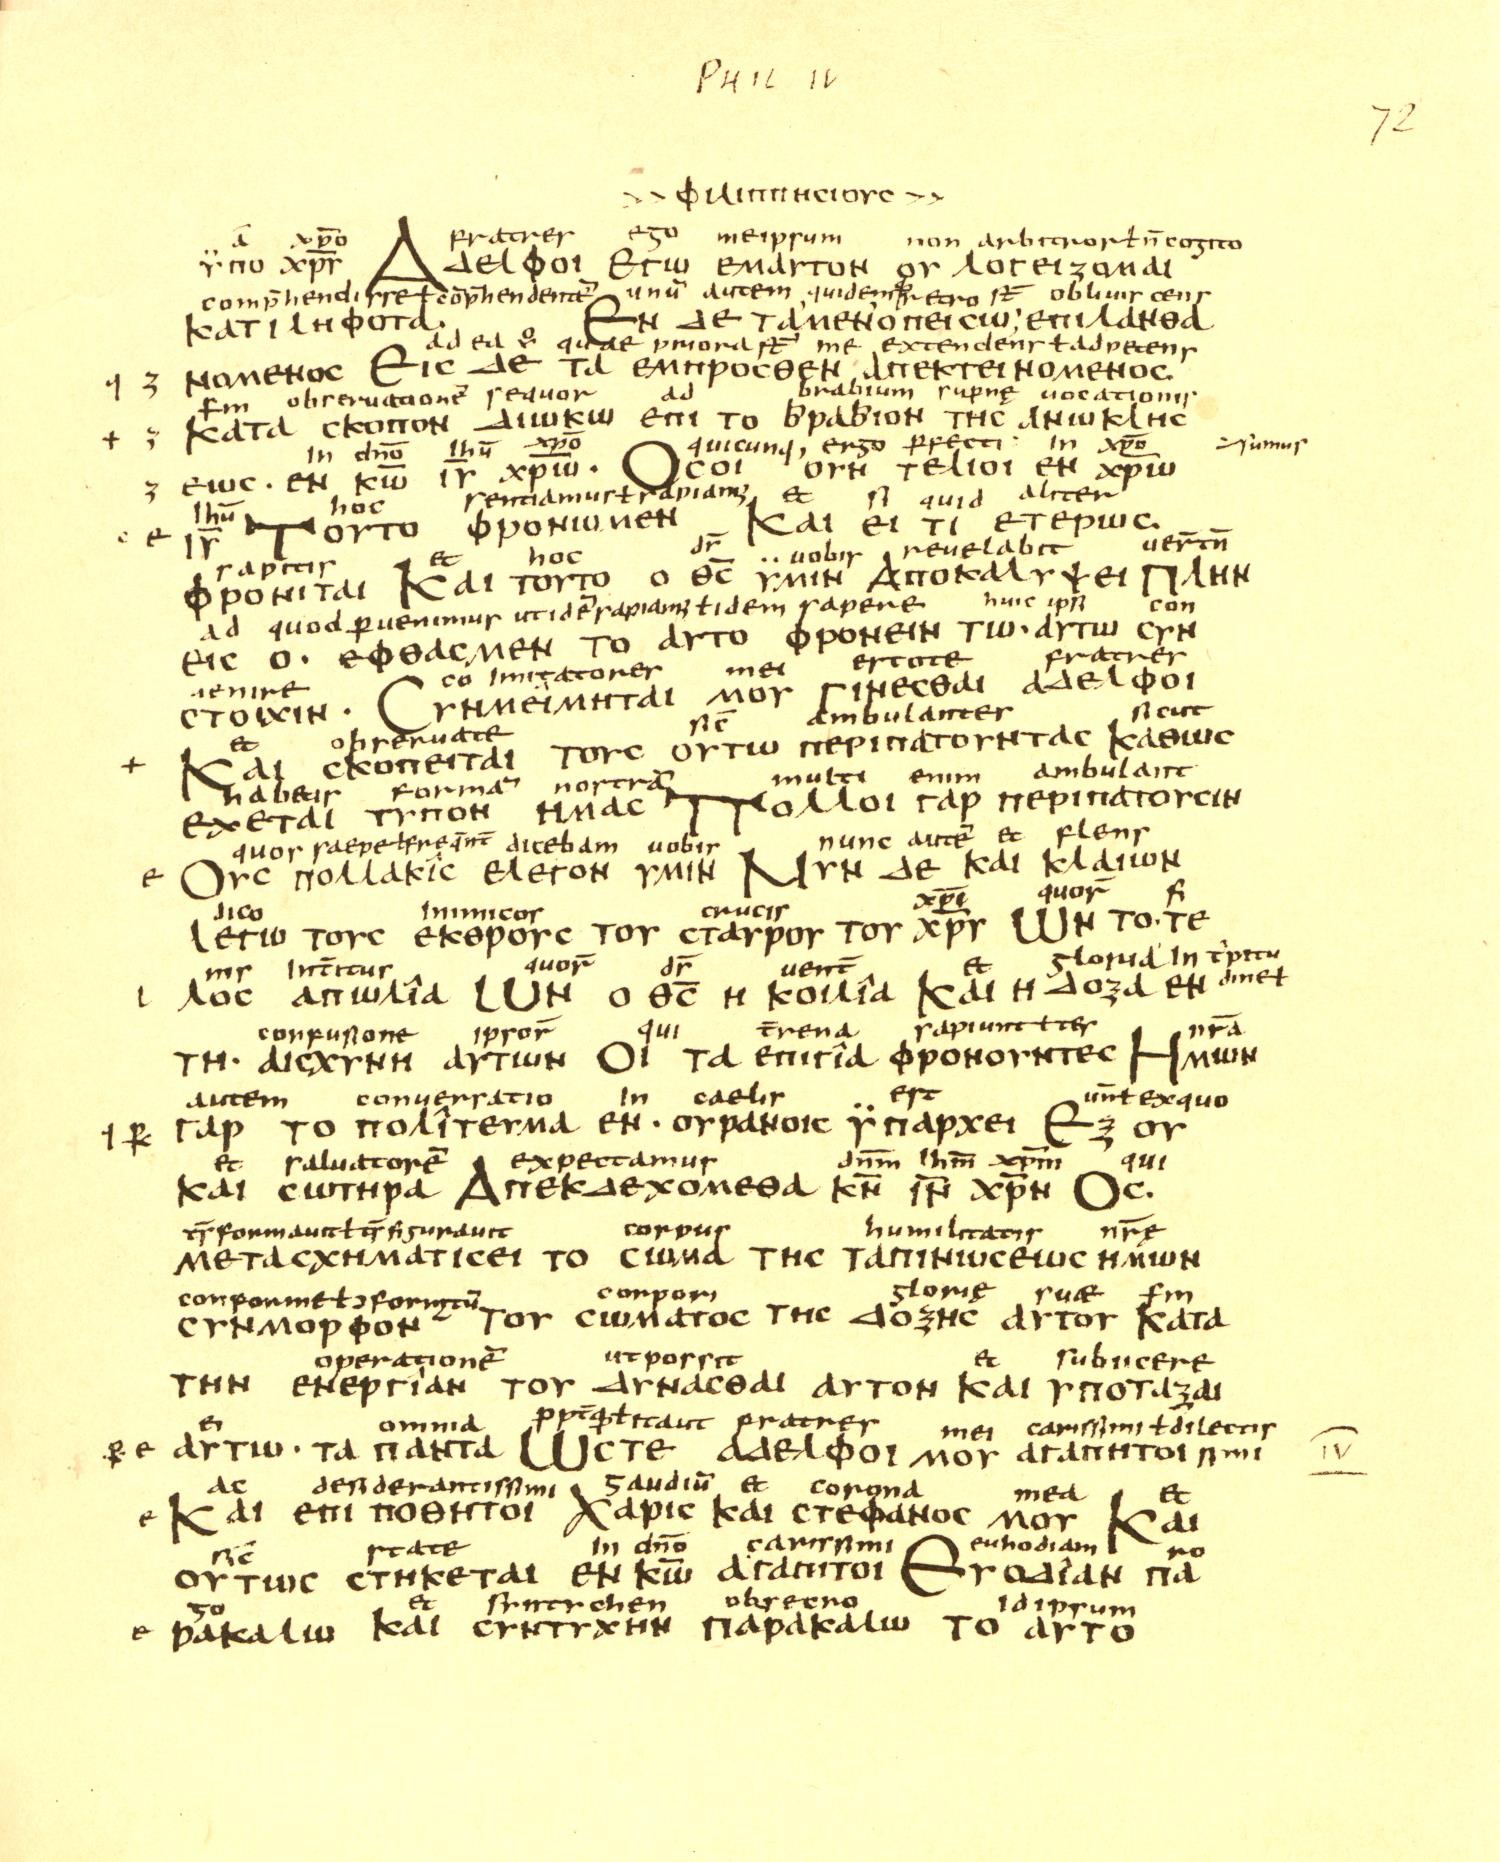 PHIL IV
72
>> φιλιππησιους >>
a xp̅o fratres ego meipsum non arbitror ł n̅ cogito
ϋπο χρ̅υ Αδελφοι Εγω εμαυτον ου λογειζομαι
comp̅hendisse ł co̅p̅hendente̅ unu̅ autem quidem retro st̅ obliviscens
κατιληφοτα. Εν δε τα μεν οπεισω, επιλανθα
ad ea v̊ quae priora st̅ me extendens ł adpetens
νομενος Εις δε τα εμπροσθεν απεκτεινομενος.
sm observatione̅ sequor ad brabium supne̜ vocationis
κατα σκοπον διωκω επι το βραβιον της ανωκλης
in dn̅o ihu̅ xp̅o quicunq, ergo p̅fecti in xp̅o sumus
εως. εν κω̅ ιυ̅ χρω̅. Οσοι ουν τελιοι εν χρω̅
ihu̅ hoc sentiamus ł sapiam᷒ et si quid aliter
ιυ̅ Τουτο φρονιωμεν Και ει τι ετεριως.
sapitis et hoc ds̅ vobis revelabit
φρονιται Και τουτο ο θς̅ υμιν Αποκαλυψει Πλην
ad quod p̅venimus ut ide̅ sapiam᷒ ł idem sapere huic ipsi con
εις ο. εφθασμεν το αυτο φρονειν τω. αυτω συν
venire co imitatores mei estote fratres
στοιχιν. Συνμειμηται μου γινεσθαι αδελφοι
et observate sic̅ ambulantes sicut
Και σκοπειται τους ουτω περιπατουνταс καθως
habetis forma̅ nostra̅ multi enim ambulant
εχεται τυπον ημας Πολλοι γαρ περιπατουσιν
quos saepe dicebam vobis nunc aute̅ et flens
Ους πολλακις ελεγον υμιν Νυν δε και κλαιων
dico inimicos crucis xp̅i quor̅ fi
λεγω τους εκθρους του σταυρου του χρ̅υ Ων το. τε
nis int̅itus quor̅ ds̅ vent̅ et gloria in
λος απωλια Ων ο θς̅ η κοιλια Και η δοξα εν
confusione ipsor̅ qui t̅rena sapiunt nr̅a
τη. αισχυνη αυτων Οι τα επιγια φρονουντες Ημων
autem conversatio in caelis est un̅ ł ex quo
γαρ το πολιτευμα εν. ουρανοις ϋπαρχει Εξ ου
et salvatore̅ expectamus dn̅m ihm̅ xpm̅ qui
και σωτηρα Απεκδεχομεθα κν̅ ιν̅ χρ̅ν Ος.
trs̅formavit ł trs̅figuravit corpus humilitatis nr̅e̜
μετασχηματισει το σωμα της ταπινωσεως ημων
conforme ł corpori glorie̜ suae sm
συνμορφον του σωματος της δοξης αυτου κατα
operatione̅ ut possit et subiicere
την ενεργιαν του δυνασθαι αυτον και υποταξαι
ei omnia fratres mei carissimi ł dilectis
αυτω. τα παντα Ωστε αδελφοι μου αγαπητοι simi
IV
ac desiderantissimi gaudiu̅ et corona mea et
Και επι ποθητοι Χαρις και στεφανος μου Και
sic̅ state in dn̅o carissimi euhodiam ro
ουτως στηκεται εν κω̅ αγαπιτοι Ευοδιαν πα
go et sintichen obsecro id ipsum
ρακαλω και συντυχην παρακαλω το αυτο